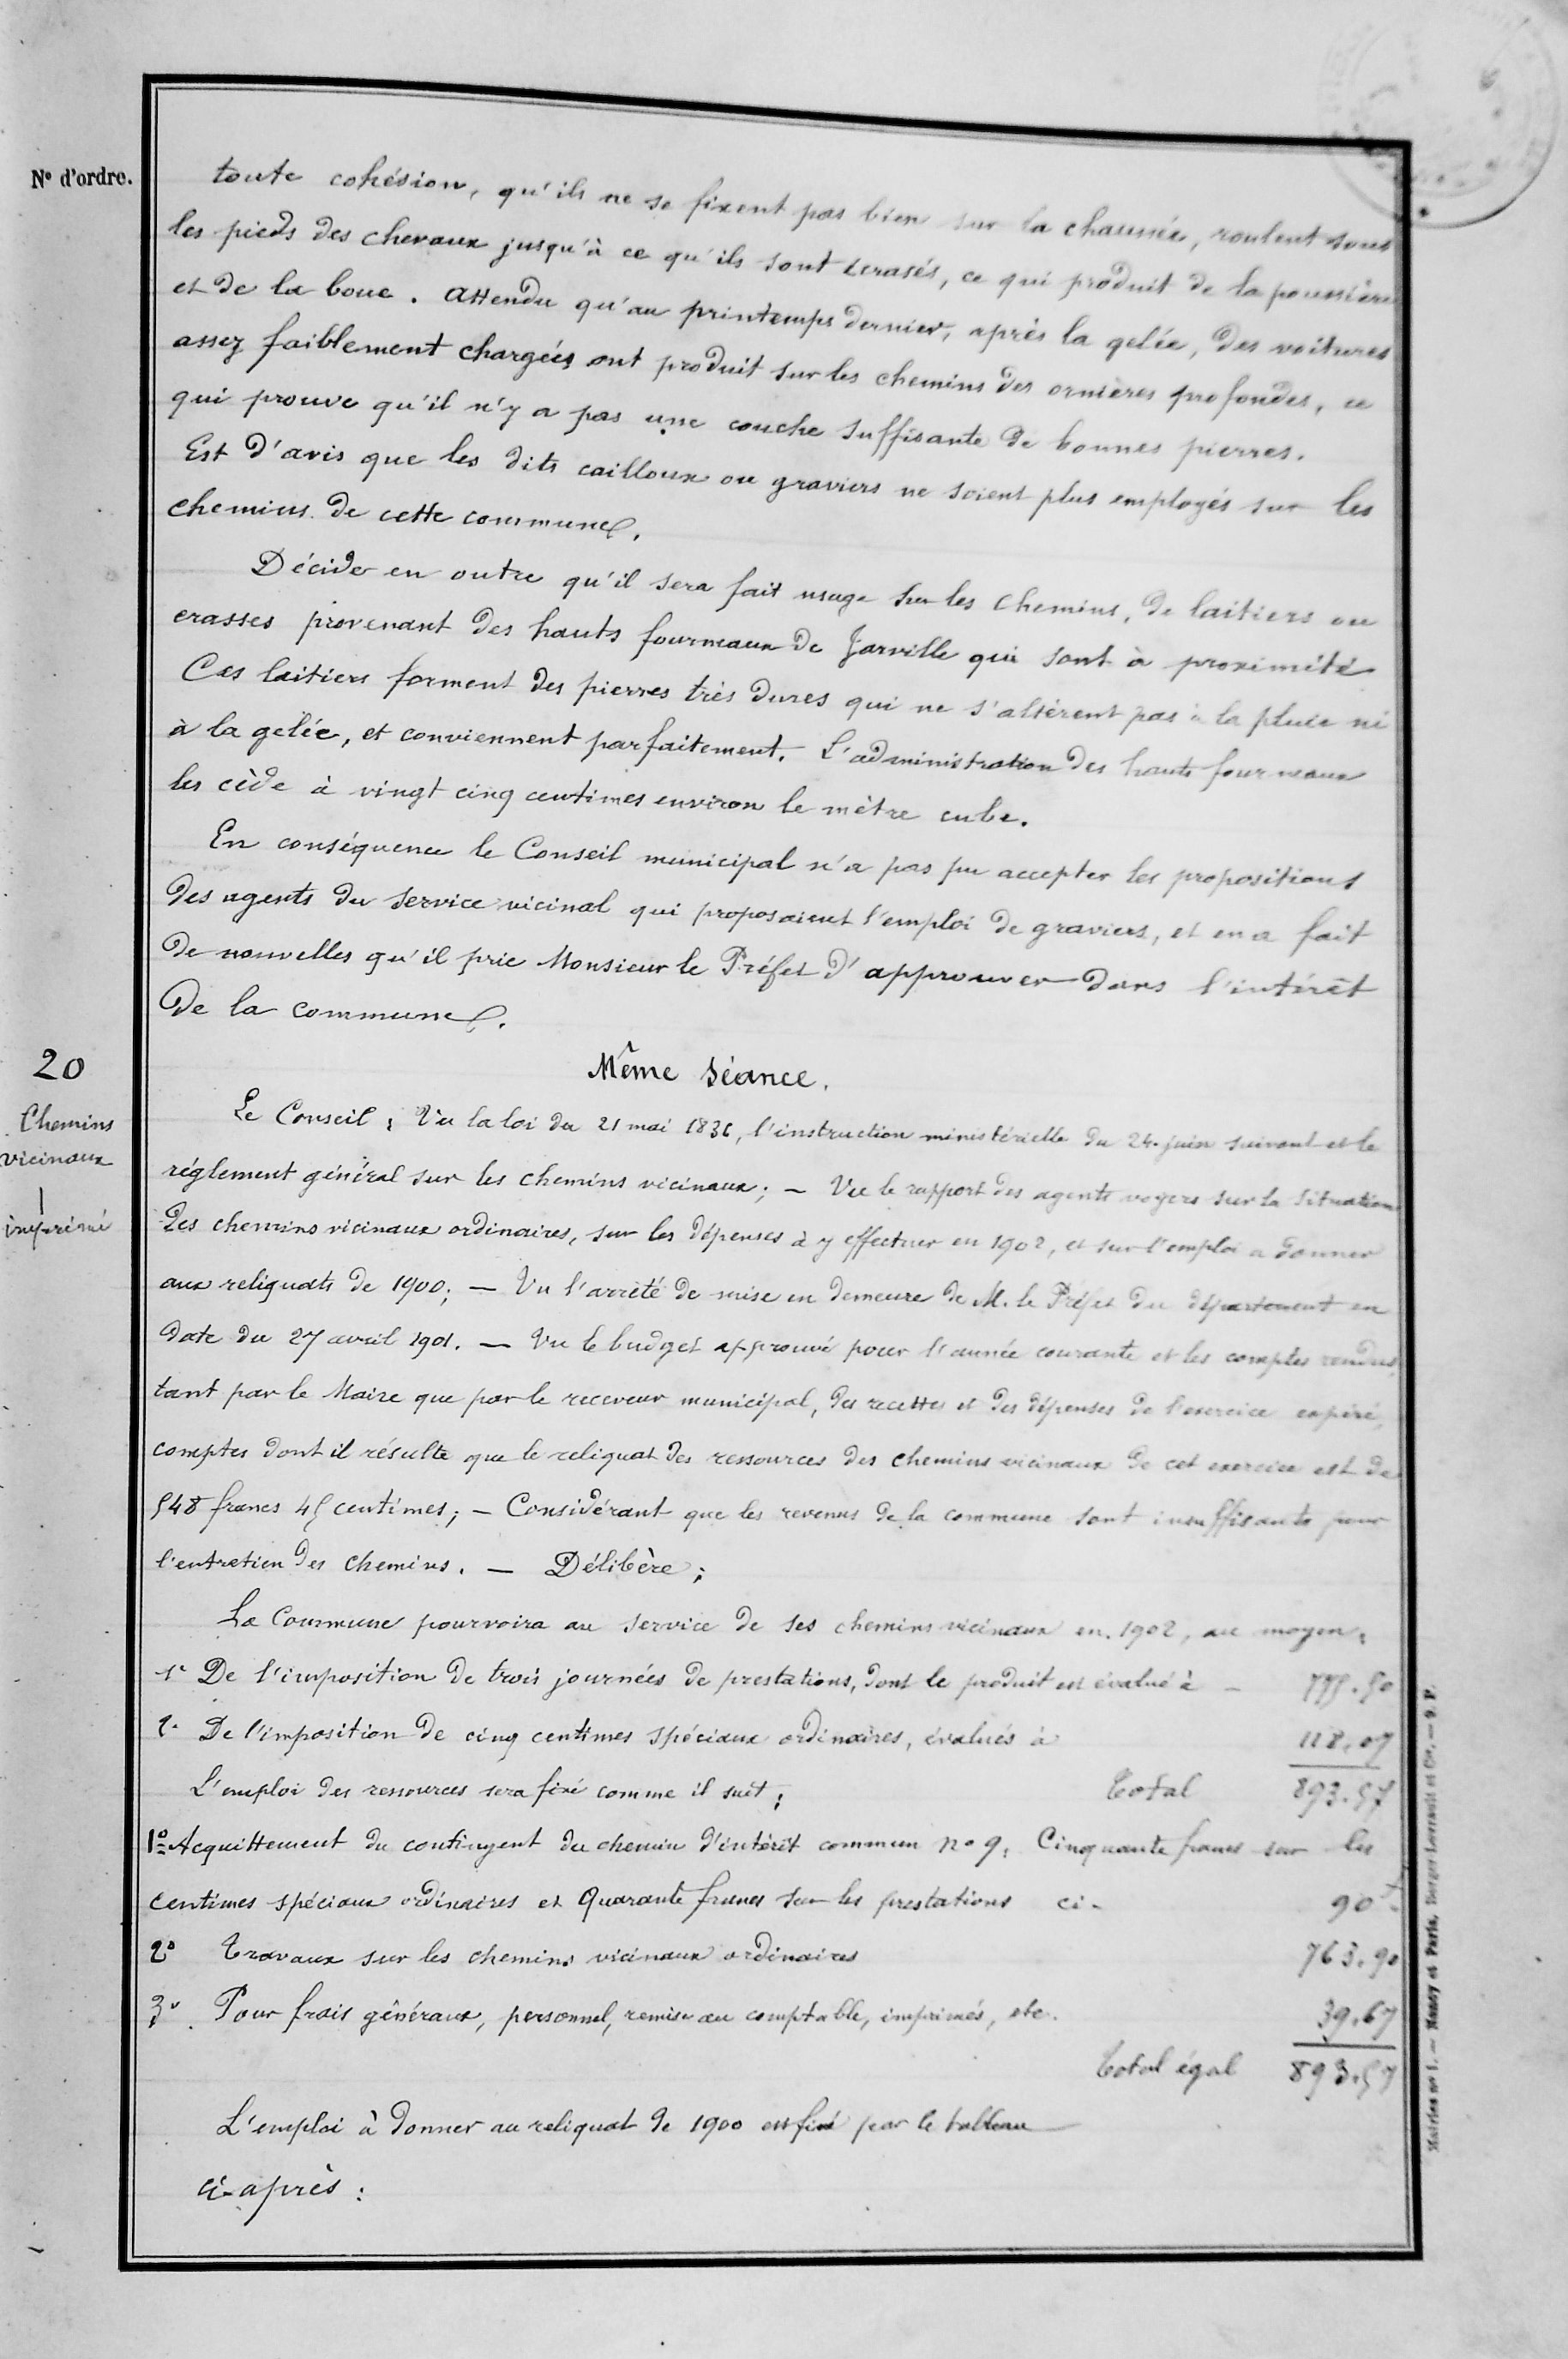 N° d'ordre.
toute cohésion, qu'ils ne se fixent pas bien sur la chaussée, roulent sous
les pieds des chevaux jusqu'à ce qu'ils sont écrasés, ce qui produit de la poussière
et de la boue. Attendu qu'au printemps dernier, après la gelée, des voitures
assez faiblement chargées ont produit sur les chemins des ornières profondes, ce
qui prouve qu'il n'y a pas une couche suffisante de bonnes pierres.
Est d'avis que les dits cailloux ou graviers ne soient plus employés sur les
chemins de cette commune.
Décide en outre qu'il sera fait usage sur les chemins, de laitiers ou
crasses provenant des hauts fourneaux de Jarville qui sont à proximité
Ces laitiers forment des pierres très dures qui ne s'altèrent pas à la pluie ni
à la gelée, et conviennent parfaitement. L'administration des hauts fourneaux
les cède à vingt cinq centimes environ le mètre cube.
En conséquence le Conseil municipal n'a pas pu accepter les propositions
des agents du service vicinal qui proposaient l'emploi de graviers, et en a fait
de nouvelles qu'il prie Monsieur le Préfet d'approuver dans l'intérêt
de la commune.
20
Chemins
vicinaux
imprimé
Même Séance.
Le Conseil; Vu la loi du 21 mai 1836, l'instruction ministérielle du 24 juin suivant et le
réglement général sur les chemins vicinaux; — Vu le rapport des agents voyers sur la situation
des chemins vicinaux ordinaires, sur les dépenses à y effectuer en 1902, et sur l'emploi a donner
aux reliquats de 1900; — Vu l'arrêté de mise en demeure de M. le Préfet du département en
date du 27 avril 1901. — Vu le budget approuvé pour l'année courante et les comptes rendus,
tant par le Maire que par le receveur municipal, des recettes et des dépenses de l'exercice expiré,
comptes dont il résulte que le reliquat des ressources des chemins vicinaux de cet exercice est de
548 francs 45 centimes; — Considérant que les revenus de la commune sont insuffisants pour
l'entretien des chemins. — Délibère;
La Commune pourvoira au service de ses chemins vicinaux en 1902, au moyen:
1° De l'imposition de trois journées de prestations, dont le produit est évalué à — 775.50
2° De l'imposition de cinq centimes spéciaux ordinaires, évalués à 118.07
L'emploi des ressources sera fixé comme il suit; Total 893.57
1° Acquittement du contingent du chemin d'intérêt commun n° 9, Cinquante francs sur les
centimes spéciaux ordinaires et Quarante francs sur les prestations ci- 90f
2° Travaux sur les chemins vicinaux ordinaires 763.90
3° Pour frais généraux, personnel, remise au comptable, imprimés, etc. 39.67
Total égal 893.57
L'emploi à donner au reliquat de 1900 est fixé par le tableau
ci-après:
Mairies n° 1. — Nancy et Paris, Berger-Levrault et Cie. — 9. P.